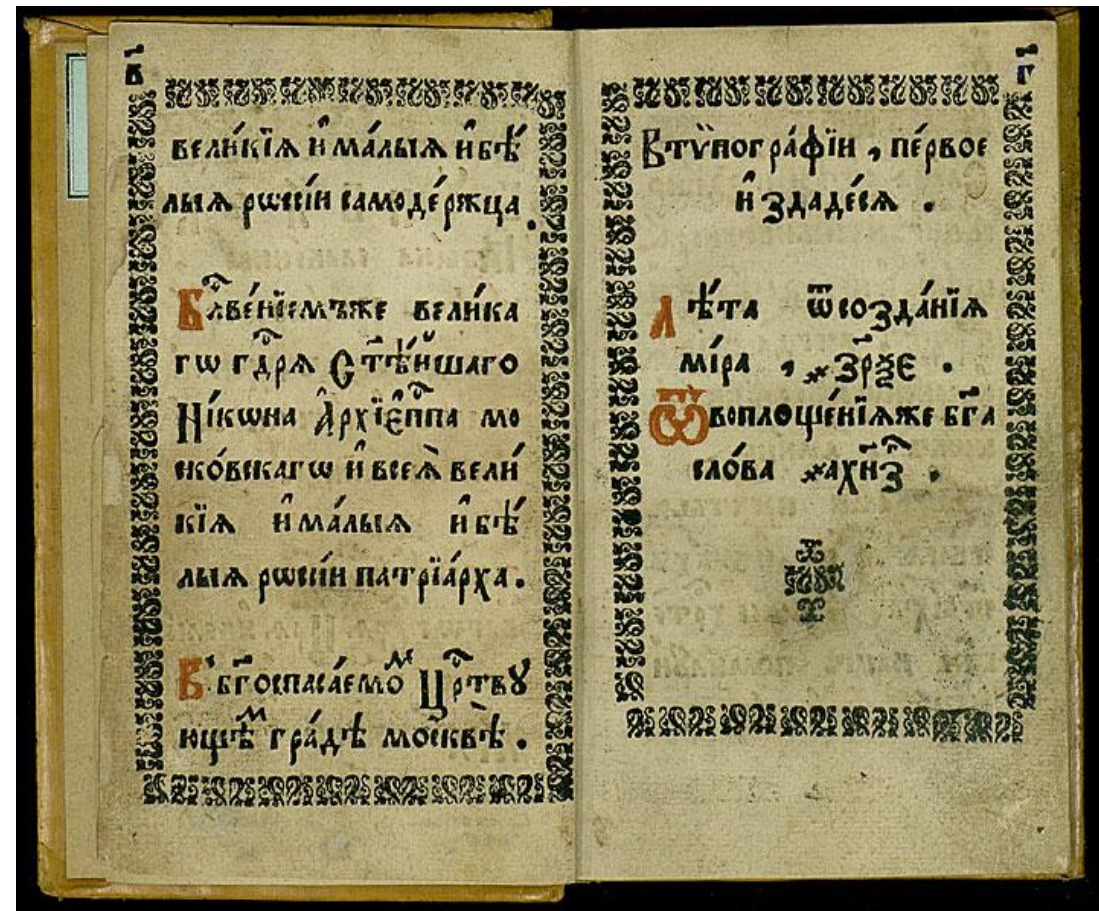 в҃
вели́кїѧ и҆ ма́лыѧ и҆ бѣ́
лыѧ рѡсі́и самоде́ржца.
Бл҃ве́нїемъ же вели́ка
гѡ гдⷭ҇рѧ Ст҃ѣ́йшаго
Ні́кѡна А҆рхїєпⷭ҇па мо
ско́вскагѡ и҆ всеѧ̀ вели́
кїѧ и҆ ма́лыѧ и҆ бѣ́
лыѧ рѡсі́и патрїа́рха.
В бг҃оспаса́емоⷨ Црⷭ҇твꙋ
ющѣⷨ гра́дѣ москвѣ̀.
г҃
В тѷпогра́фїи, пе́рвое
и҆здаде́сѧ.
лѣ́та ѿ созда́нїѧ
мі́ра, ҂зр҃ѯє.
Ѿ воплоще́нїѧ же бг҃а
сло́ва ҂ахн҃з.